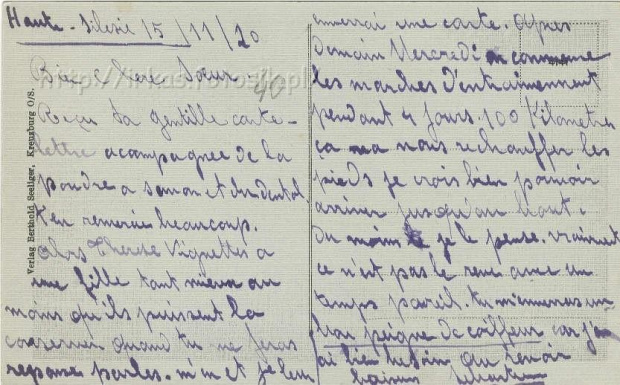 Haute-Silésie 15/11/20
Bien chère Sœur.
Reçu ta gentille carte-
lettre acompagnée de la
poudre a savon et du dentol
t'en remercie beaucoup.
alors Therese Vignettes a
une fille tant mieux au
moins qu'ils puissent la
conserver quand tu me feras
reponse parles. m'en et je leur
enverrai une carte. Apres
demain Mercredi on commence
les marches d'entrainement
pendant 4 jours. 100 Kilometres
ça va nous rechauffer les
pieds je crois bien pouvoir
arriver jusqu'au bout.
du moins je le pense. vraiment
ce n'est pas le reve avec un
temps pareil. tu m'enverras un
bon peigne de coiffeur car j'en
ai bien besoin au revoir
baisers
Verlag Berthold Seeliger, Kreuzburg O/S.
40